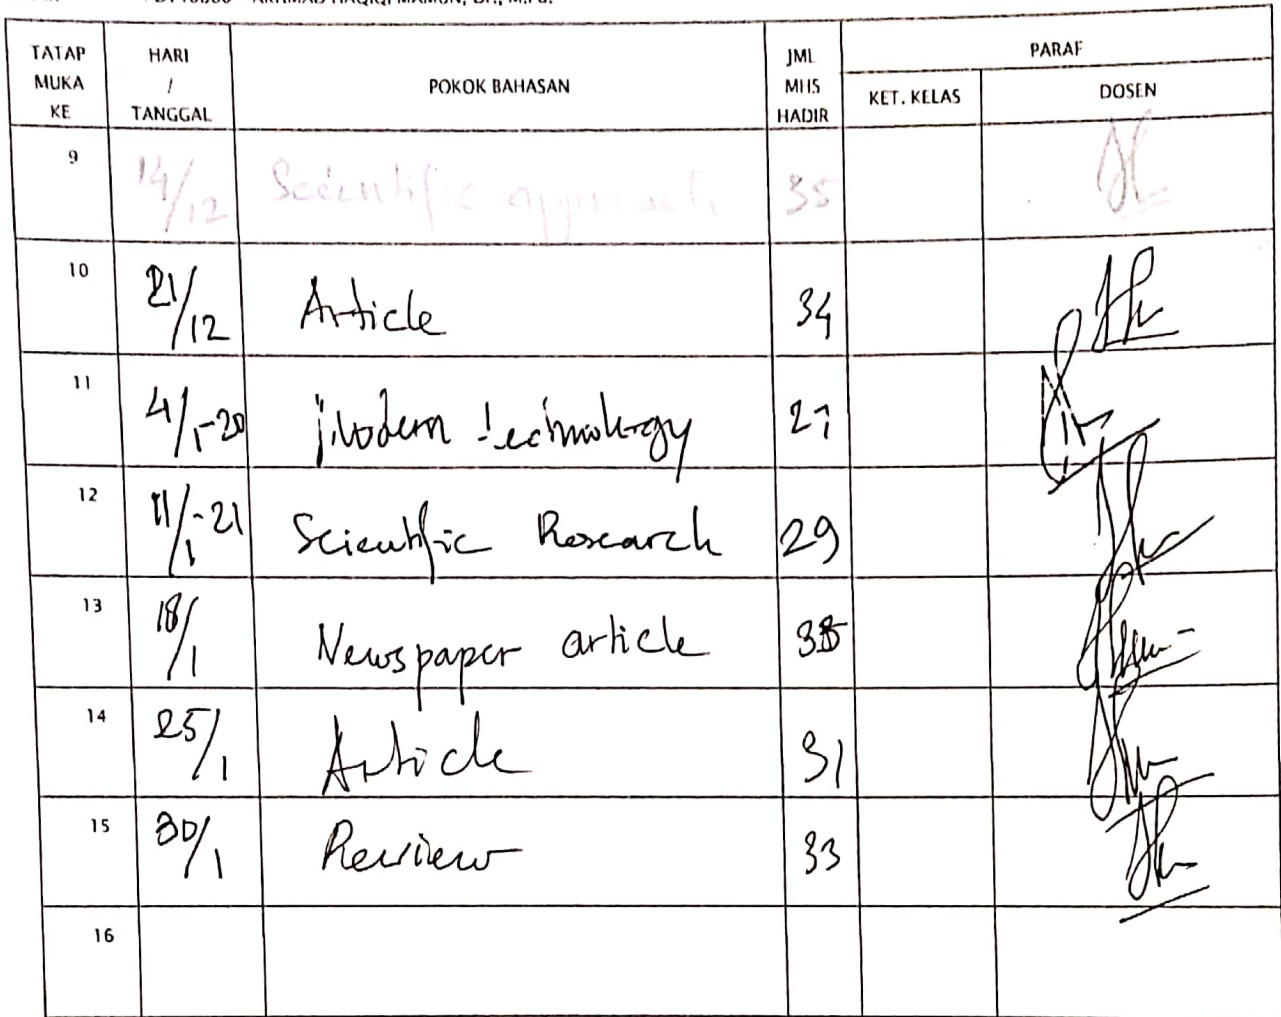 TATAP MUKA KE HARI / TANGGAL POKOK BAHASAN JML MHS HADIR PARAF
KET. KELAS DOSEN
9 14/12 Scientific approach 35
10 21/12 Article 34
11 4/1-20 Modern technology 27
12 11/1-21 Scientific Research 29
13 18/1 Newspaper article
14 25/1 Article 31
15 30/1 Review 33
16